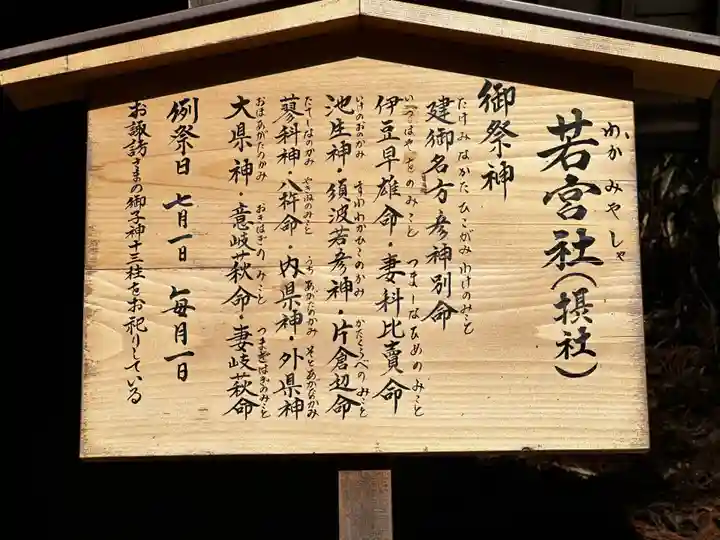 若宮社(摂社)
わかみやしゃ
御祭神
建御名方彦神別命
たけみなかたひこかみわけのみこと
伊豆早雄命・妻科比賣命
いづはやをのみこと つましなひめのみこと
池生神・須波若彦神・片倉辺命
いけのおのかみ すわわかひこのかみ かたくらべのみこと
蓼科神・八杵命・内県神・外県神
たてしなのかみ やきねのみこと うちあがたのかみ そとあがたのかみ
大県神・意岐萩命・妻岐萩命
おほあがたのかみ おきはぎのみこと つまぎはぎのみこと
例祭日 七月一日 毎月一日
お諏訪さまの御子神十三柱をお祀りしている